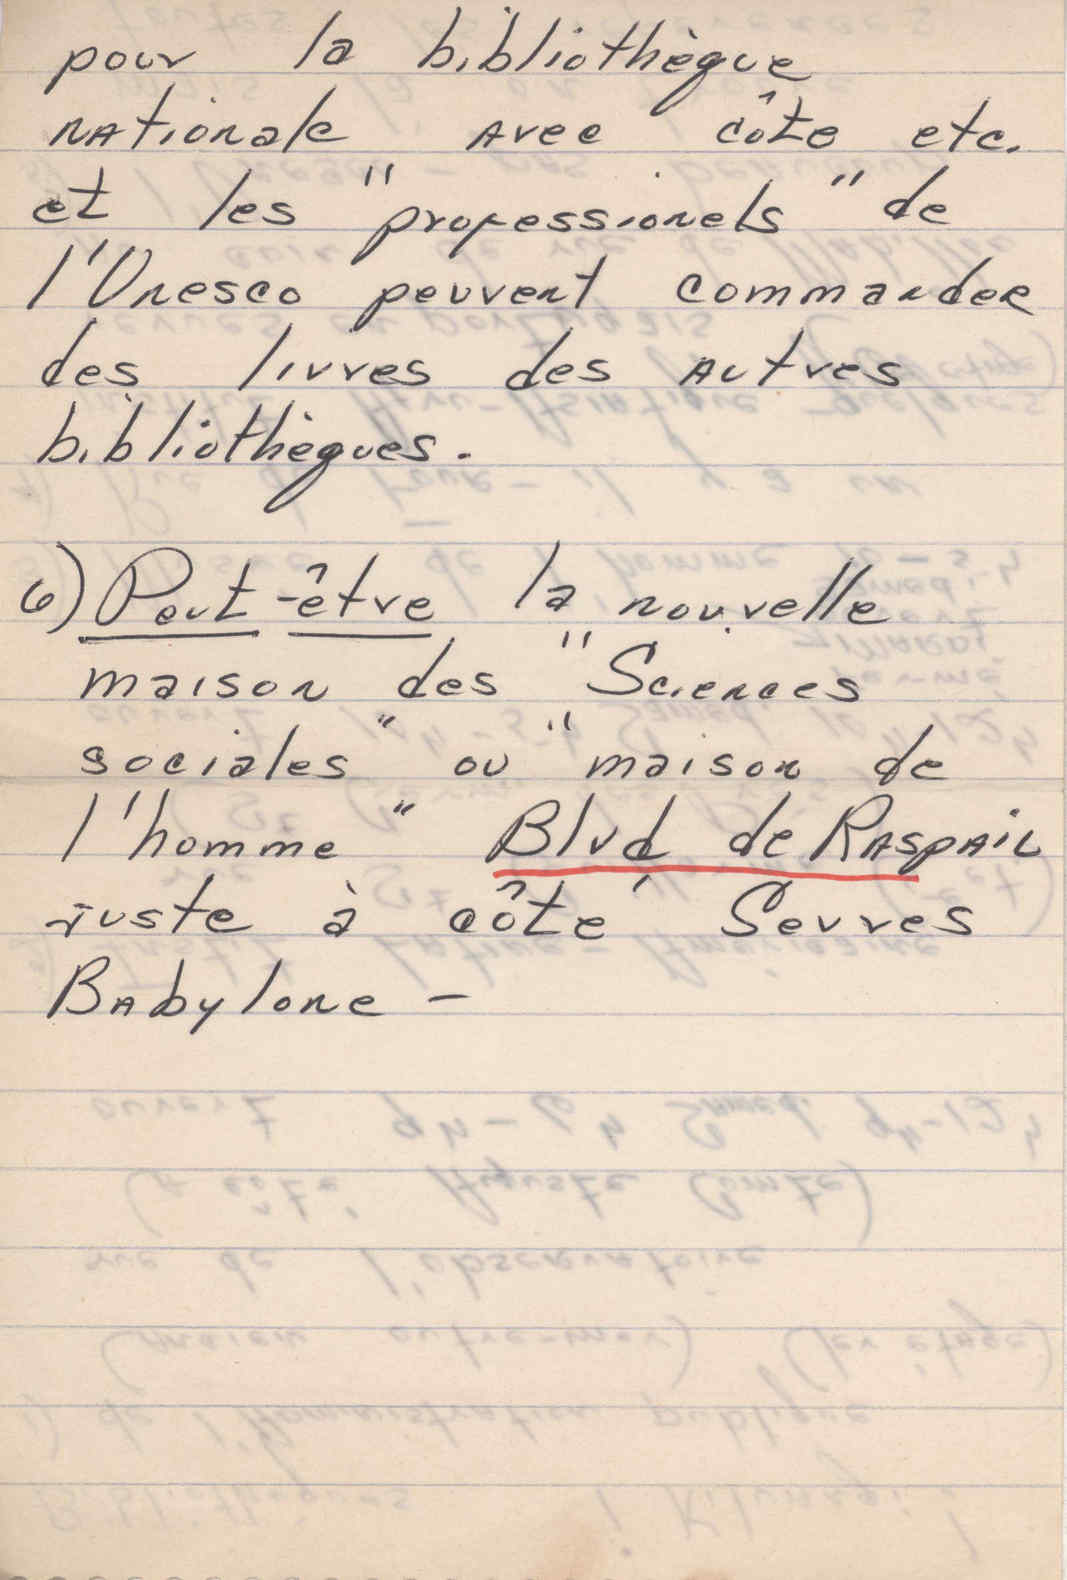 pour la bibliothèque
nationale avec côte etc.
et les "professionels" de
l'Unesco peuvent commander
des livres des autres
bibliothèques.
6) Peut-être la nouvelle
maison des "Sciences
sociales" ou "maison de
l'homme" Blvd de Raspail
juste à côté Sevres
Babylone -